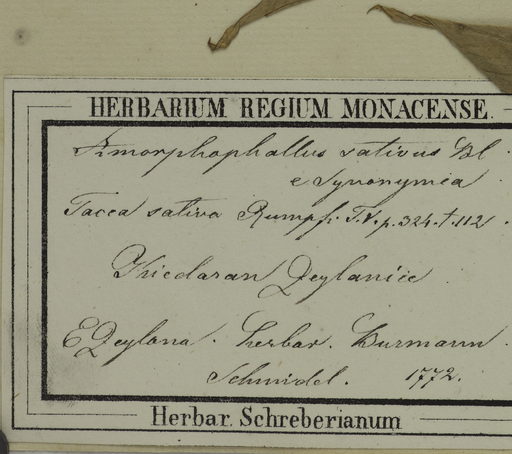 HERBARIUM REGIUM MONACENSE.
Amorphophallus sativus Bl
e Synonymia
Tacca sativa Rumpf. T.V. p. 324. t. 112
Kiedaran Zeylanice
E Zeylona. herbar. Burmann.
Schmidel. 1772.
Herbar. Schreberianum